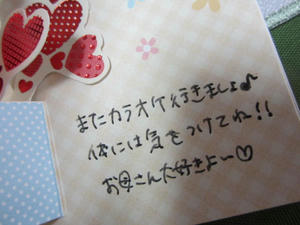 またカラオケ行きましょ♪
体には気をつけてね!!
お母さん大好きよー♡